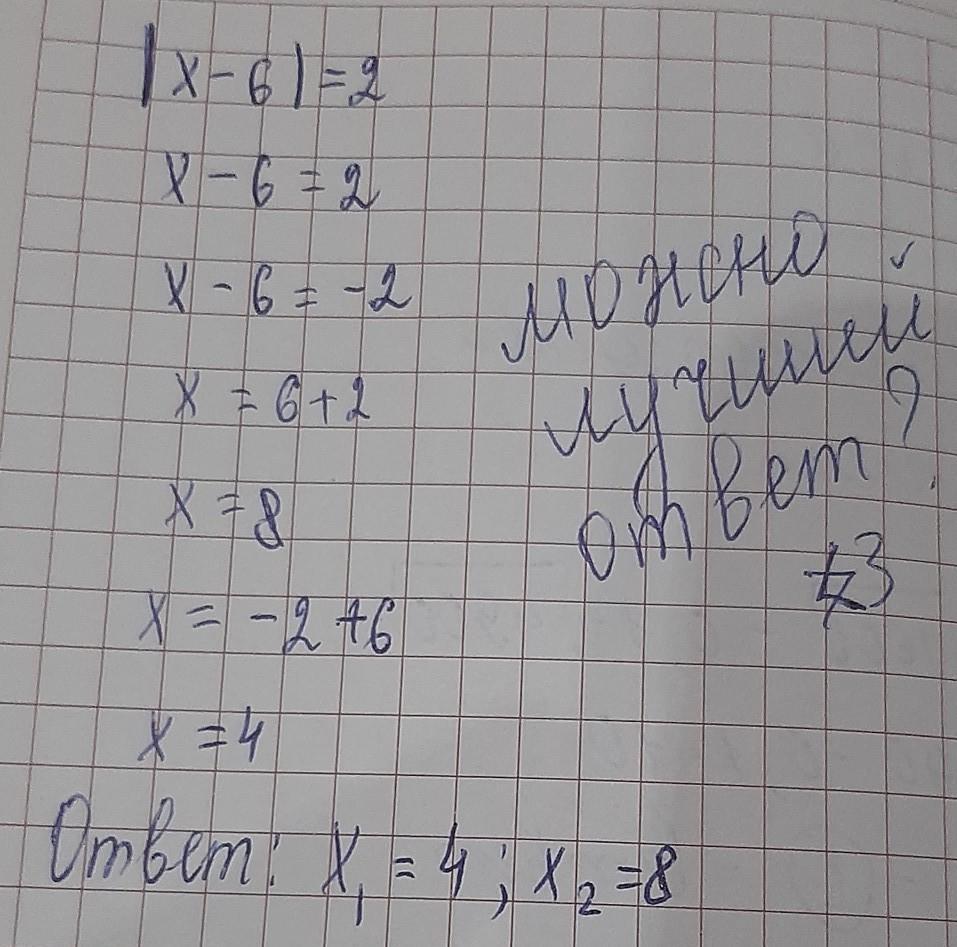 |x-6|=2
x-6=2
x-6=-2
x=6+2
x=8
x=-2+6
x=4
можно
лучший
ответ?
Ответ: x₁=4; x₂=8